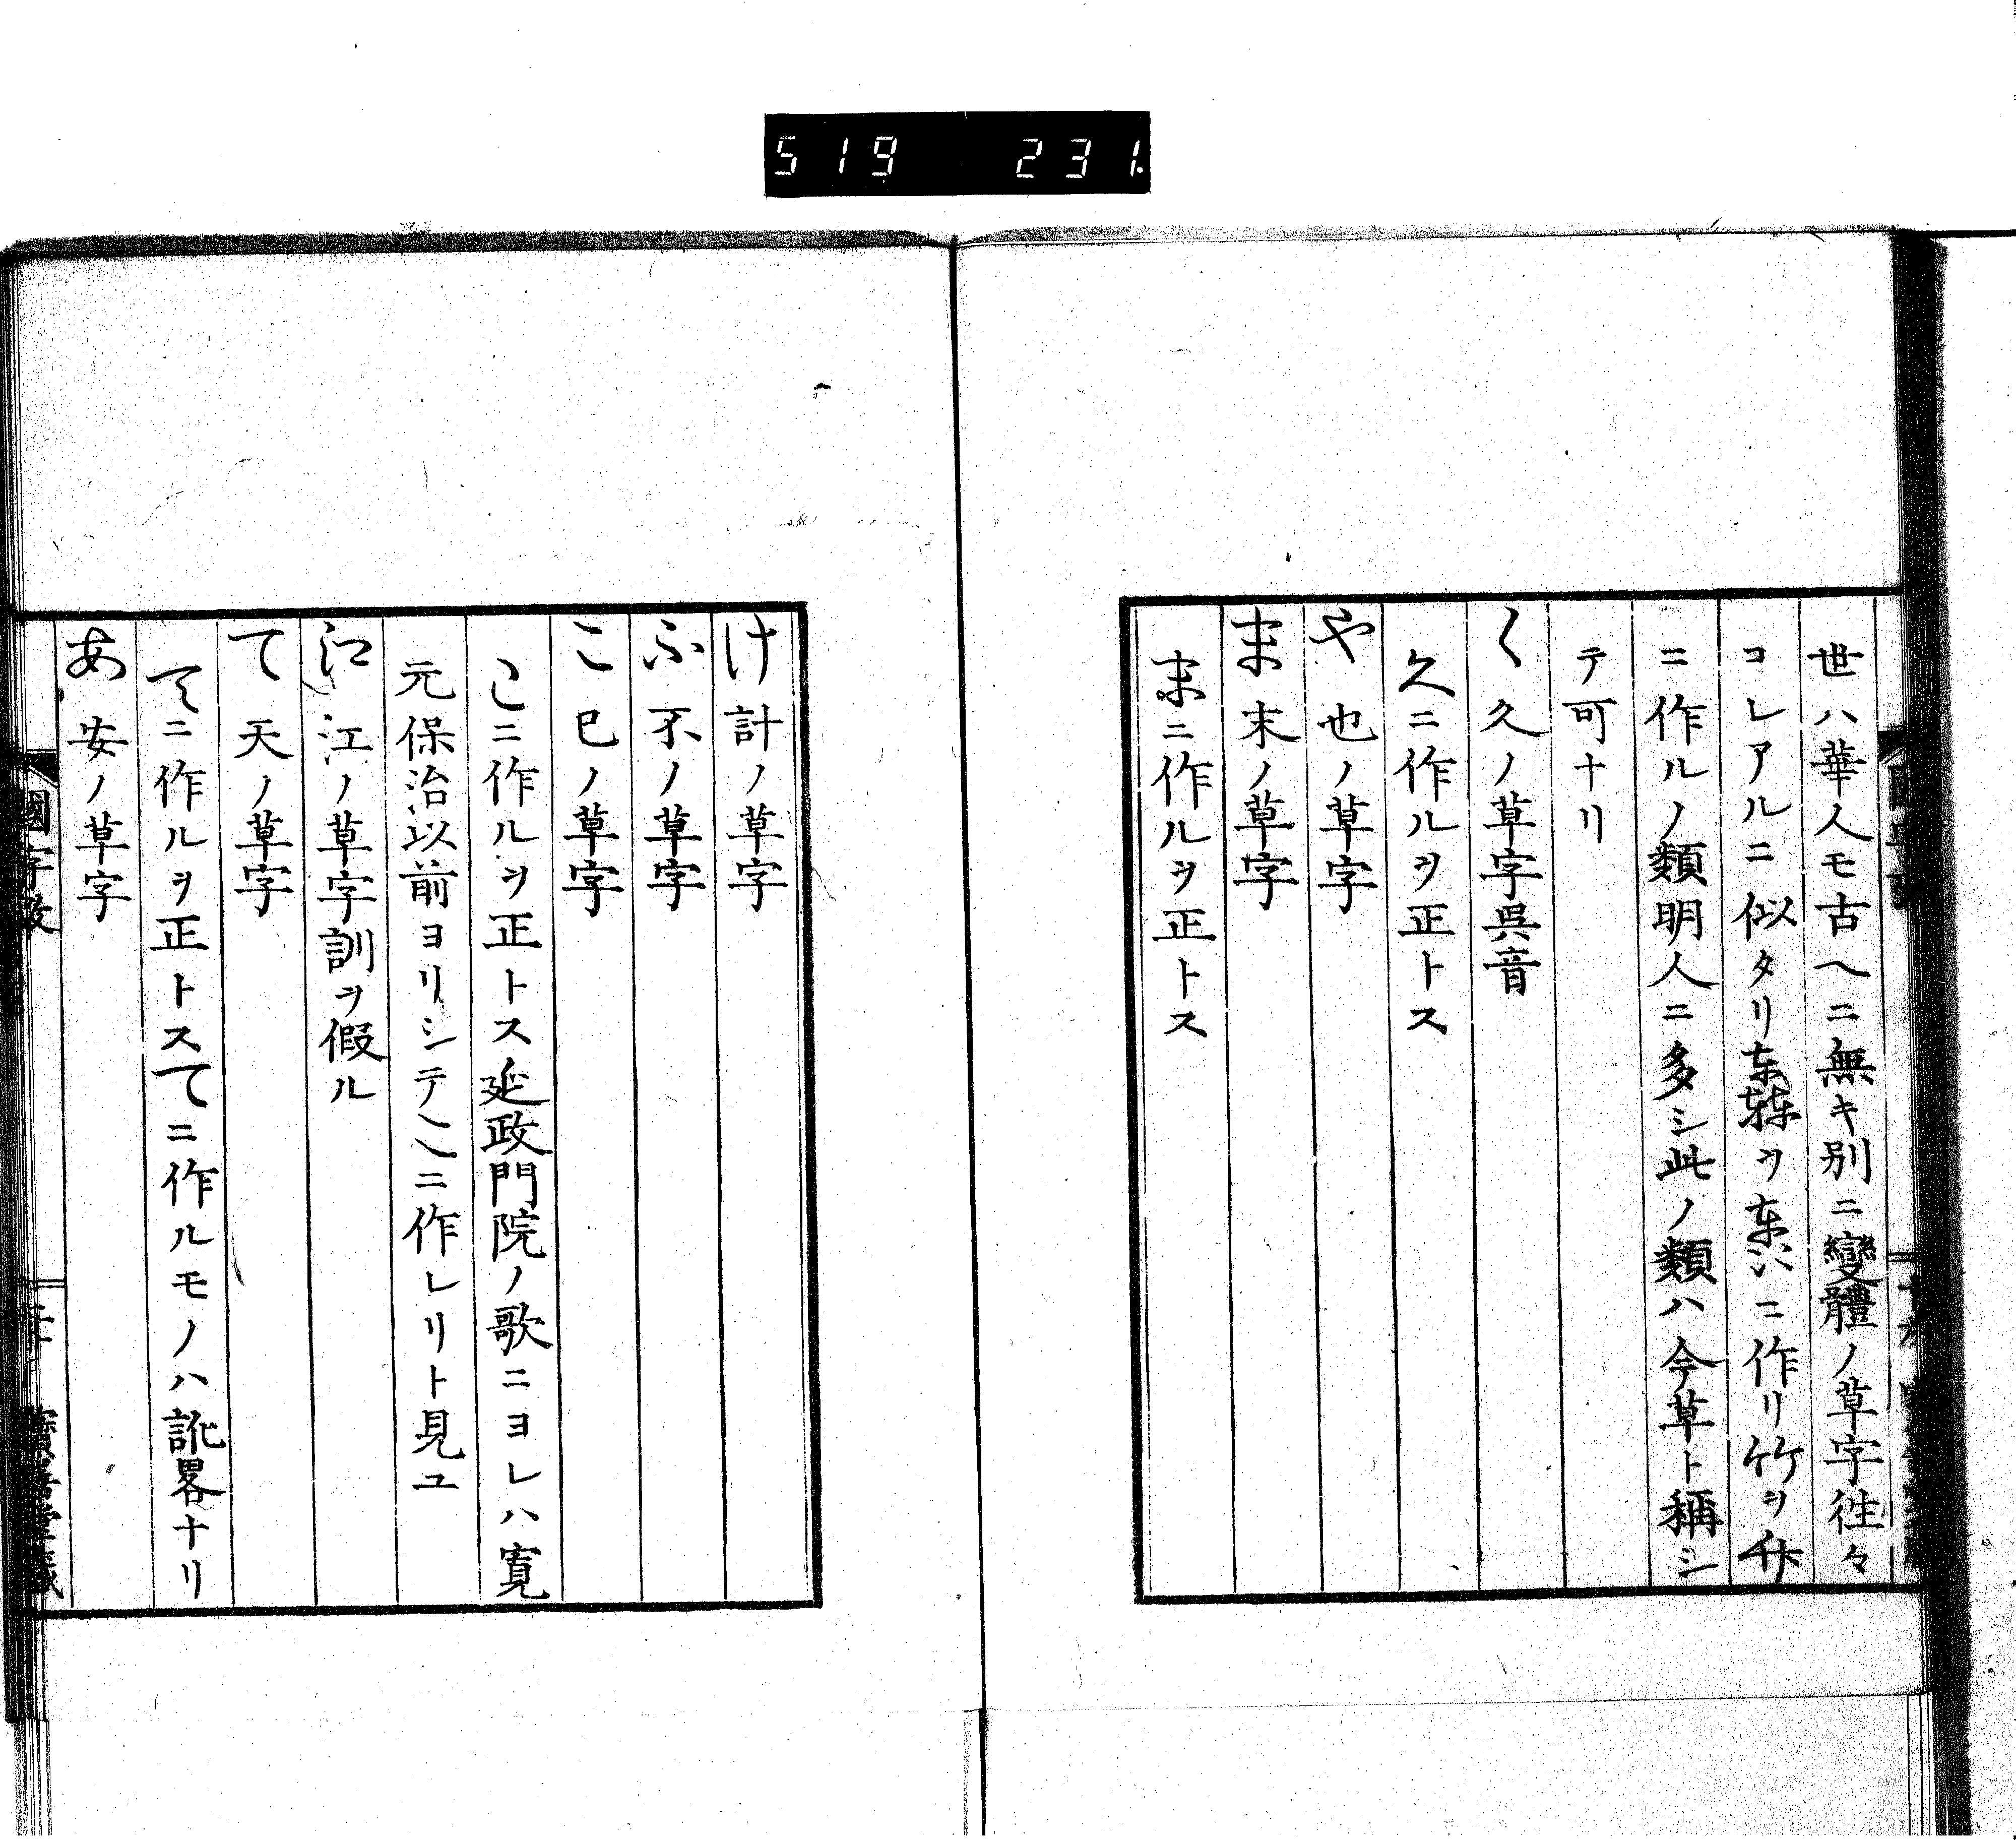 519 231
世ハ華人モ古ヘニ無キ別ニ變體ノ草字往々
コレアルニ似タリ東ヲニ作リ竹ヲ
ニ作ルノ類明人ニ多シ此ノ類ハ今草ト稱シ
テ可ナリ
く 久ノ草字呉音
久ニ作ルヲ正トス
や 也ノ草字
ま 末ノ草字
末ニ作ルヲ正トス
け 計ノ草字
ふ 不ノ草字
こ 己ノ草字
こニ作ルヲ正トス延政門院ノ歌ニヨレハ寛
元保治以前ヨリシテこニ作レリト見ユ
江 江ノ草字訓ヲ假ル
て 天ノ草字
てニ作ルヲ正トスてニ作ルモノハ訛畧ナリ
あ 安ノ草字
國字攷
二十